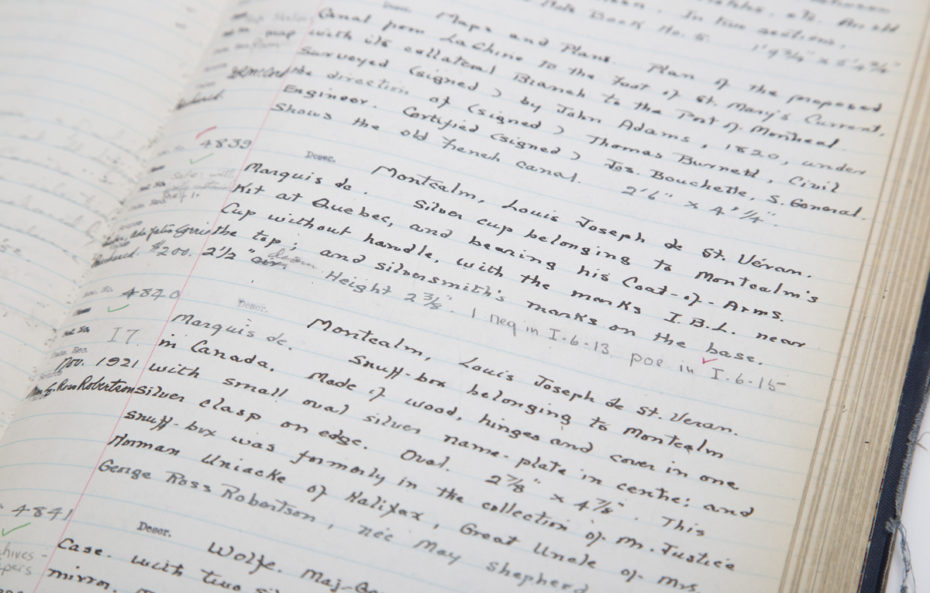 Book No. 5. 1' 9¾" x 6' 4¾"
Descr. Maps and Plans. Plan of the proposed
Canal from Lachine to the foot of St. Mary's Current,
with its collateral Branch to the Port of Montreal.
Surveyed (signed) by John Adams, 1820, under
the direction of (signed) Thomas Burnett, Civil
Engineer. Certified (signed) Jos. Bouchette, S. General.
Shows the old French canal. 2'6" x 4' ¼".
4839
Descr. Montcalm, Louis Joseph de St. Véran.
Marquis de. Silver cup belonging to Montcalm's
Kit at Quebec, and bearing his Coat-of-Arms.
Cup without handle, with the marks I.B.L. near
the top; and silversmith's marks on the base.
$200. 2½" diam. Height 2⅜". 1 neg in I.6.13 pos in I.6.15
4840
Descr. Montcalm, Louis Joseph de St. Veran.
Marquis de. Snuff-box belonging to Montcalm
in Canada. Made of wood, hinges and cover in one
17
Nov. 1921
with small oval silver name-plate in centre; and
Mrs. G. Ross Robertson
silver clasp on edge. Oval. 2⅞" x 4⅞". This
snuff-box was formerly in the collection of Mr. Justice
Norman Uniacke of Halifax, Great Uncle of Mrs
George Ross Robertson, née May Shepherd
4841
Descr. Wolfe. Maj-Ge
Case. with two
mirror.